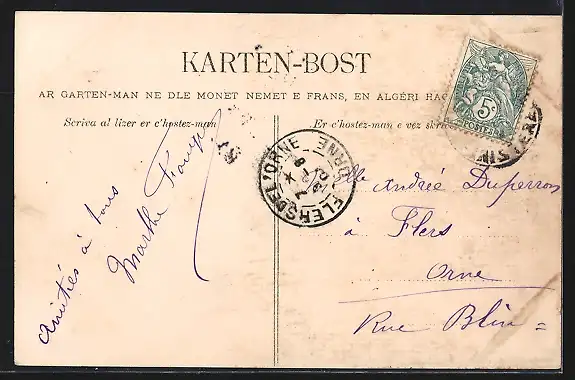 KARTEN-BOST
AR GARTEN-MAN NE DLE MONET NEMET E FRANS, EN ALGÉRI HAG
Scriva al lizer er c'hpstez-man
Er c'hostez-man e vez skri
amitiés à tous
Marthe
FLERS DE L'ORNE
ORNE
5c
POSTES
FINISTERE
Mlle Andrée Duperron
à Flers
Orne
Rue Blin =